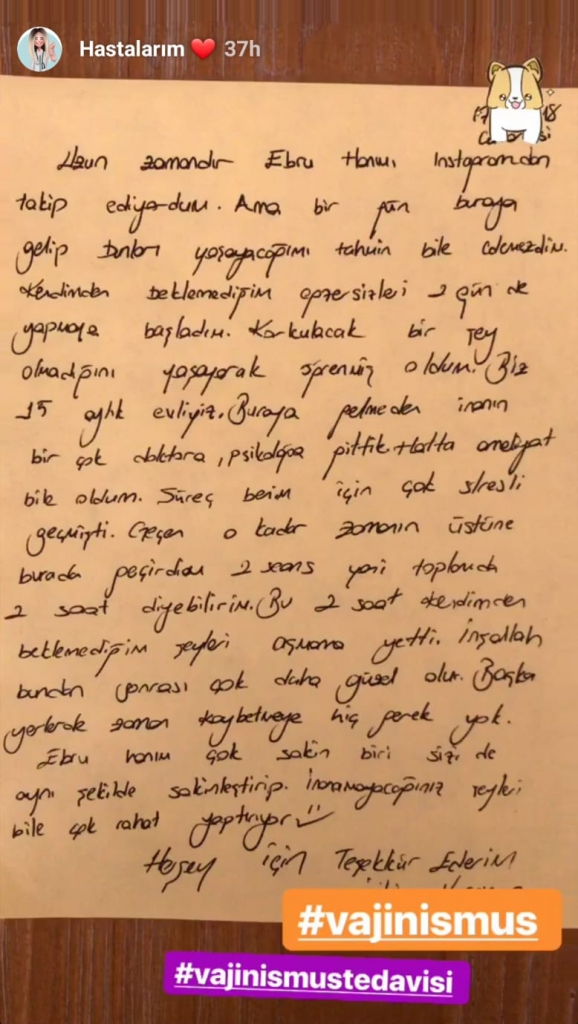 Hastalarım ❤ 37h
Uzun zamandır Ebru Hanımı Instagramdan
takip ediyordum. Ama bir gün buraya
gelip bunları yaşayacağımı tahmin bile edemezdim.
Kendimden beklemediğim egzersizleri 2 gün de
yapmaya başladım. Korkulacak bir şey
olmadığını yaşayarak öğrenmiş oldum. Biz
15 aylık evliyiz. Buraya gelmeden inanın
bir çok doktora, psikoloğa gittik. Hatta ameliyat
bile oldum. Süreç benim için çok stresli
geçmişti. Geçen o kadar zamanın üstüne
burada geçirdiğim 2 seans yani toplamda
2 saat diyebilirim. Bu 2 saat kendimden
beklemediğim şeyleri aşmama yetti. İnşallah
bundan sonrası çok daha güzel olur. Başka
yerlerde zaman kaybetmeye hiç gerek yok.
Ebru hanım çok sakin biri sizi de
aynı şekilde sakinleştirip. İnanamayacağınız şeyleri
bile çok rahat yaptırıyor
Herşey için Teşekkür Ederim
#vajinismus
#vajinismustedavisi